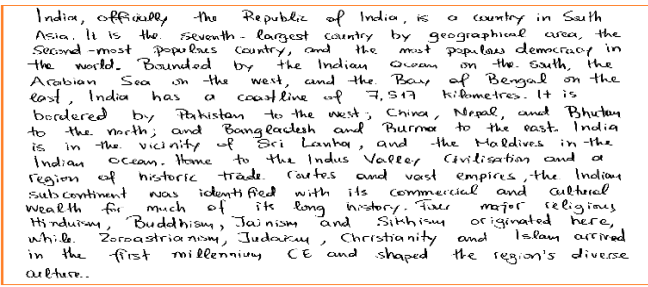 India, officially the Republic of India, is a country in South
Asia. It is the seventh-largest country by geographical area, the
second-most populous country, and the most populous democracy in
the world. Bounded by the Indian Ocean on the South, the
Arabian Sea on the west, and the Bay of Bengal on the
east, India has a coastline of 7,517 kilometres. It is
bordered by Pakistan to the west; China, Nepal, and Bhutan
to the north; and Bangladesh and Burma to the east. India
is in the vicinity of Sri Lanka, and the Maldives in the
Indian Ocean. Home to the Indus Valley Civilisation and a
region of historic trade routes and vast empires, the Indian
subcontinent was identified with its commercial and cultural
wealth for much of its long history. Four major religions,
Hinduism, Buddhism, Jainism and Sikhism originated here,
while Zoroastrianism, Judaism, Christianity and Islam arrived
in the first millennium CE and shaped the region's diverse
culture..